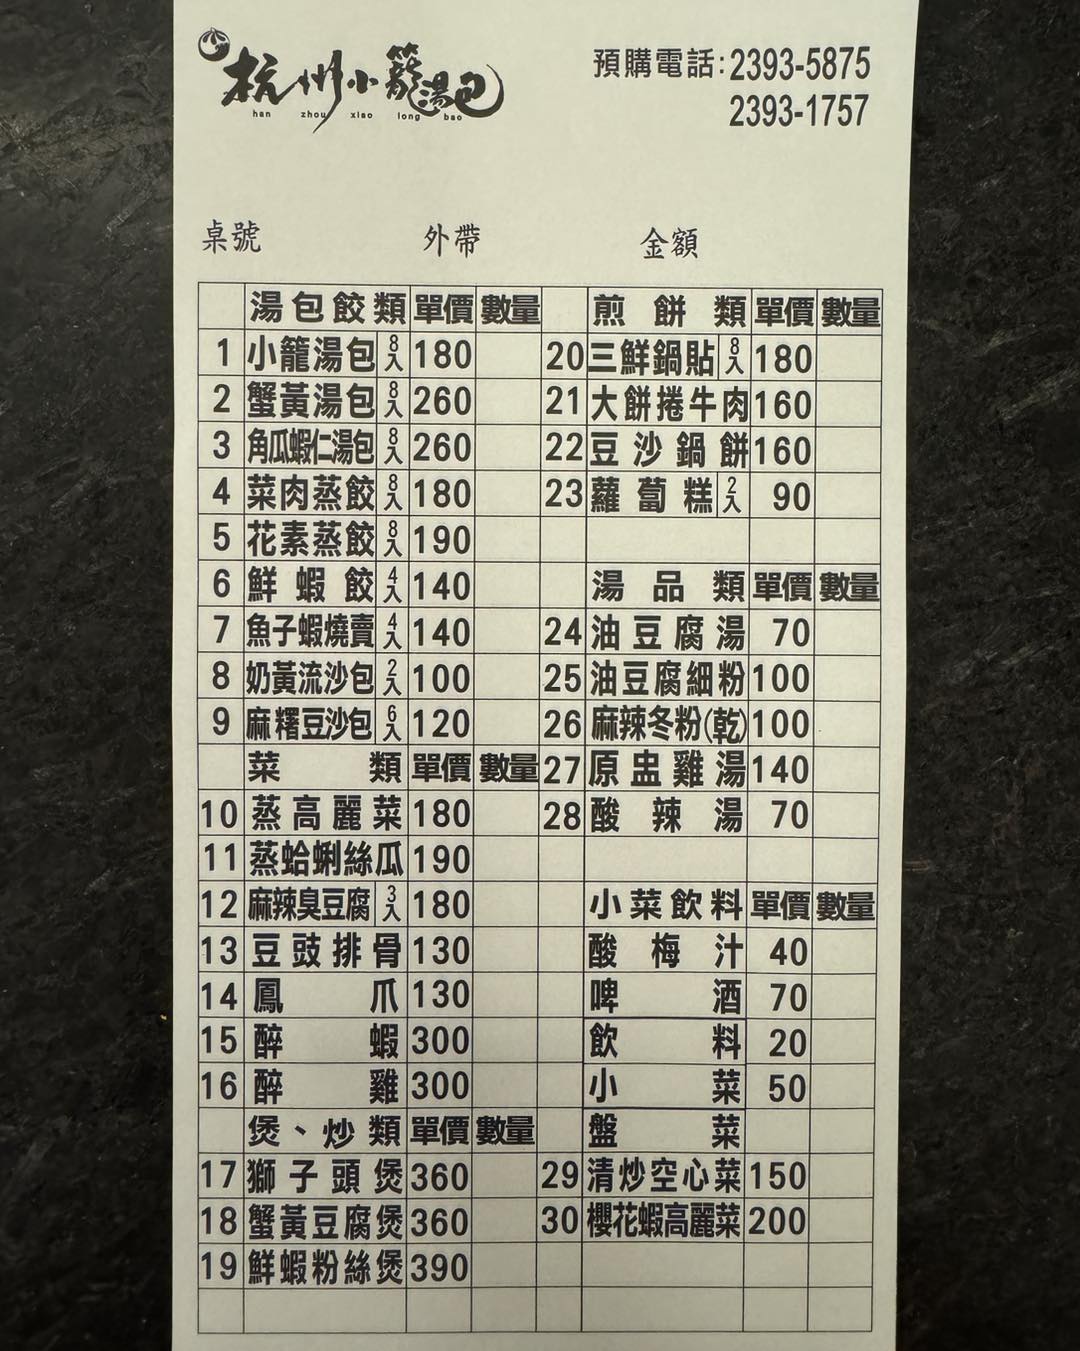 杭州小籠湯包
han zhou xiao long bao
預購電話:2393-5875
2393-1757
桌號 外帶 金額
湯包餃類 單價 數量
1 小籠湯包 8入 180
2 蟹黃湯包 8入 260
3 角瓜蝦仁湯包 8入 260
4 菜肉蒸餃 8入 180
5 花素蒸餃 8入 190
6 鮮蝦餃 4入 140
7 魚子蝦燒賣 4入 140
8 奶黃流沙包 2入 100
9 麻糬豆沙包 6入 120
菜類 單價 數量
10 蒸高麗菜 180
11 蒸蛤蜊絲瓜 190
12 麻辣臭豆腐 3入 180
13 豆豉排骨 130
14 鳳爪 130
15 醉蝦 300
16 醉雞 300
煲、炒類 單價 數量
17 獅子頭煲 360
18 蟹黃豆腐煲 360
19 鮮蝦粉絲煲 390
煎餅類 單價 數量
20 三鮮鍋貼 8入 180
21 大餅捲牛肉 160
22 豆沙鍋餅 160
23 蘿蔔糕 2入 90
湯品類 單價 數量
24 油豆腐湯 70
25 油豆腐細粉 100
26 麻辣冬粉(乾) 100
27 原盅雞湯 140
28 酸辣湯 70
小菜飲料 單價 數量
酸梅汁 40
啤酒 70
飲料 20
小菜 50
盤菜
29 清炒空心菜 150
30 櫻花蝦高麗菜 200